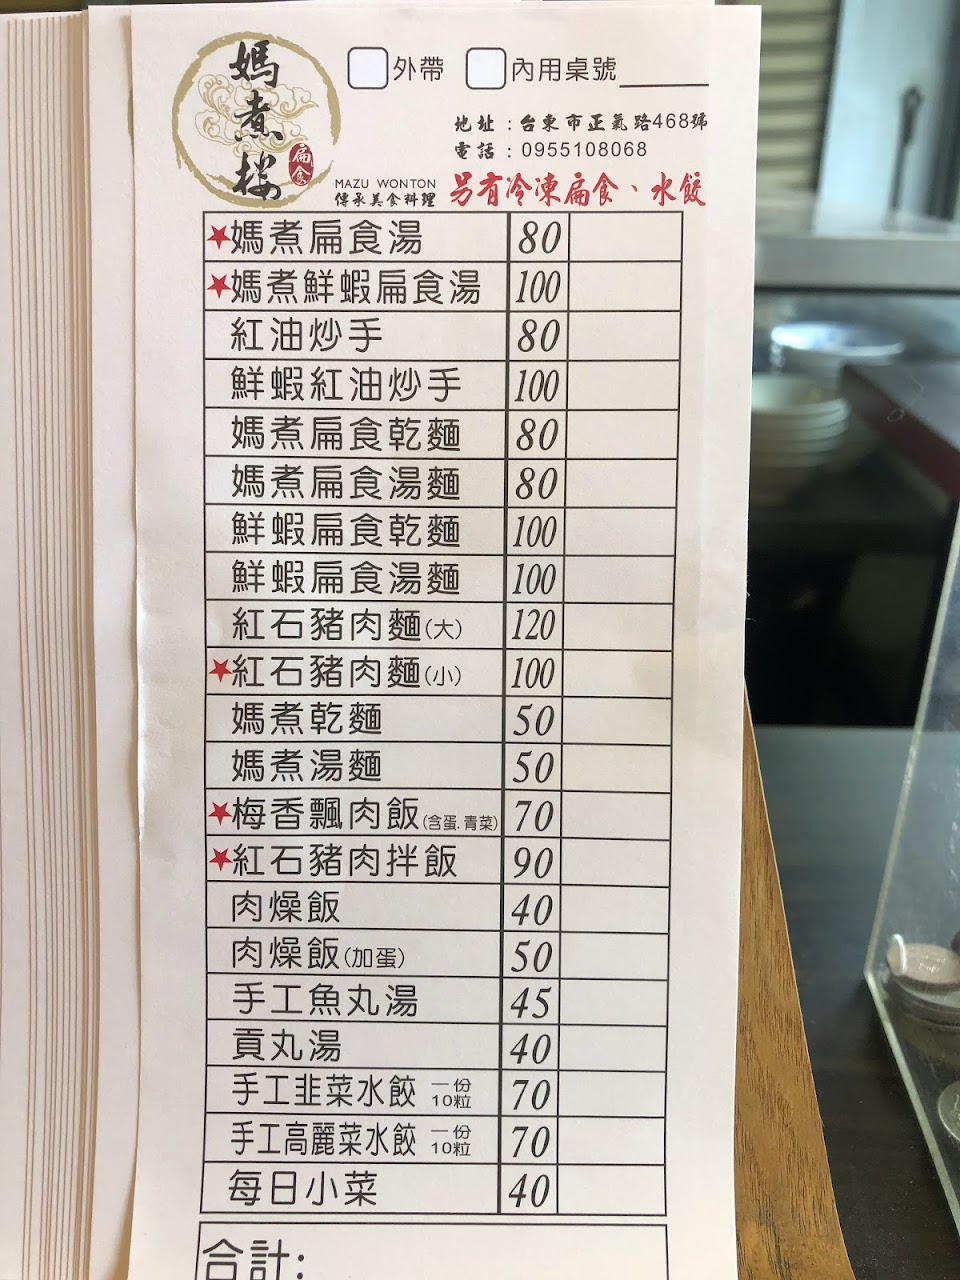 媽煮樓
扁食
MAZU WONTON
傳承美食料理
外帶 內用桌號
地址：台東市正氣路468號
電話：0955108068
另有冷凍扁食、水餃
★媽煮扁食湯 80
★媽煮鮮蝦扁食湯 100
紅油炒手 80
鮮蝦紅油炒手 100
媽煮扁食乾麵 80
媽煮扁食湯麵 80
鮮蝦扁食乾麵 100
鮮蝦扁食湯麵 100
紅石豬肉麵(大) 120
★紅石豬肉麵(小) 100
媽煮乾麵 50
媽煮湯麵 50
★梅香飄肉飯(含蛋.青菜) 70
★紅石豬肉拌飯 90
肉燥飯 40
肉燥飯(加蛋) 50
手工魚丸湯 45
貢丸湯 40
手工韭菜水餃 一份10粒 70
手工高麗菜水餃 一份10粒 70
每日小菜 40
合計: